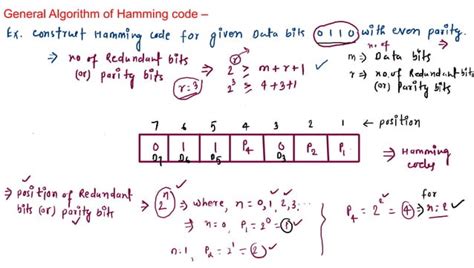 General Algorithm of Hamming code –
Ex. Construct Hamming code for given Data bits 0110 with even parity.
⇒ no of Redundant bits (or) parity bits
⇒ 2^r ≥ m+r+1 ✓
r=3 2^3 ≥ 4+3+1
no. of
m ⇒ Data bits
r ⇒ no. of Redundant bits
(or) Parity bits
7 6 5 4 3 2 1 ← position
0 1 1 P4 0 P2 P1 ⇒ Hamming codes
D7 D6 D5 D3
⇒ position of Redundant bits (or) parity bits
⇒ 2^n ⇒ where, n = 0,1,2,3,...
⇒ n=0, P1 = 2^0 = 1 ✓
n=1, P2 = 2^1 = 2 ✓
for
P4 = 2^2 = 4 ⇒ n=2 ✓